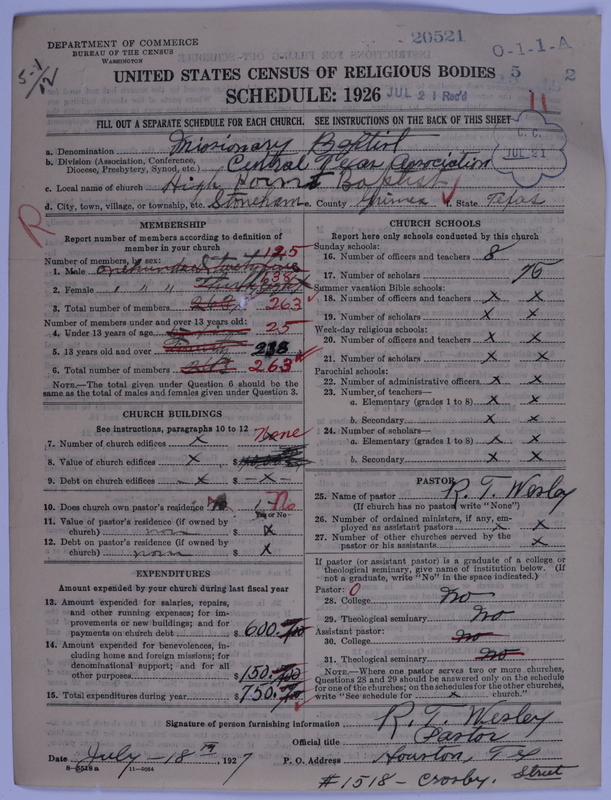 20521
O-1-1-A
DEPARTMENT OF COMMERCE
BUREAU OF THE CENSUS
WASHINGTON
5-1/12
UNITED STATES CENSUS OF RELIGIOUS BODIES 5 2
SCHEDULE: 1926 JUL 21 Rec'd 11
FILL OUT A SEPARATE SCHEDULE FOR EACH CHURCH. SEE INSTRUCTIONS ON THE BACK OF THIS SHEET
C. C.
JUL 21
a. Denomination Missionary Baptist
b. Division (Association, Conference,
Diocese, Presbytery, Synod, etc.) Central Texas Association
c. Local name of church High Point Baptist
d. City, town, village, or township, etc. Stoneham e. County Grimes f. State Texas
R
MEMBERSHIP
Report number of members according to definition of
member in your church
Number of members, by sex: 125
1. Male one hundred twenty five
2. Female " " " 138
3. Total number of members 263 263
Number of members under and over 13 years old:
4. Under 13 years of age 25
5. 13 years old and over 238
6. Total number of members 263 263
NOTE.—The total given under Question 6 should be
the same as the total of males and females given under Question 3.
CHURCH BUILDINGS
See instructions, paragraphs 10 to 12 None
7. Number of church edifices X
8. Value of church edifices X $
9. Debt on church edifices X $ – X –
10. Does church own pastor's residence? No
Yes or No
11. Value of pastor's residence (if owned by
church) $ X
12. Debt on pastor's residence (if owned by
church) $ X
EXPENDITURES
Amount expended by your church during last fiscal year
13. Amount expended for salaries, repairs,
and other running expenses; for im-
provements or new buildings; and for
payments on church debt $ 600.
14. Amount expended for benevolences, in-
cluding home and foreign missions; for
denominational support; and for all
other purposes $ 150.
15. Total expenditures during year $ 750.
CHURCH SCHOOLS
Report here only schools conducted by this church
Sunday schools:
16. Number of officers and teachers 8
17. Number of scholars 75
Summer vacation Bible schools:
18. Number of officers and teachers X X
19. Number of scholars X X
Week-day religious schools:
20. Number of officers and teachers X X
21. Number of scholars X X
Parochial schools:
22. Number of administrative officers X X
23. Number of teachers—
a. Elementary (grades 1 to 8) X X
b. Secondary X X
24. Number of scholars—
a. Elementary (grades 1 to 8) X X
b. Secondary X X
PASTOR
25. Name of pastor R. T. Wesley
(If church has no pastor, write "None")
26. Number of ordained ministers, if any, em-
ployed as assistant pastors X X
27. Number of other churches served by the
pastor or his assistants X X
If pastor (or assistant pastor) is a graduate of a college or
theological seminary, give name of institution below. (If
not a graduate, write "No" in the space indicated.)
Pastor: 0
28. College No
29. Theological seminary No
Assistant pastor:
30. College No
31. Theological seminary No
NOTE.—Where one pastor serves two or more churches,
Questions 28 and 29 should be answered only on the schedule
for one of the churches; on the schedules for the other churches,
write "See schedule for X church."
Signature of person furnishing information R. T. Wesley
Official title Pastor
Date July - 18th, 1927 P. O. Address Houston, Tex
8-5518a 11-9064
#1518 - Crosby. Street